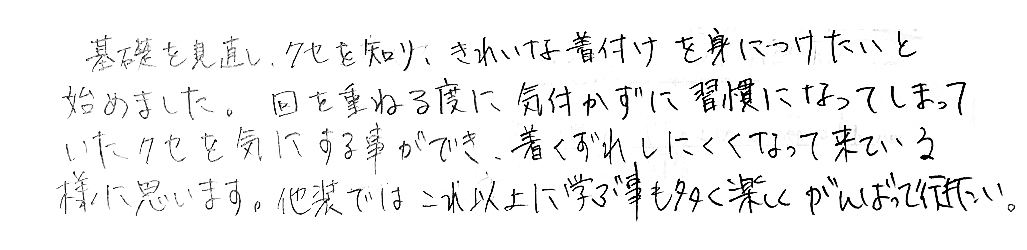 基礎を見直し、クセを知り、きれいな着付けを身につけたいと
始めました。回を重ねる度に気付かずに習慣になってしまって
いたクセを気にする事ができ、着くずれしにくくなって来ている
様に思います。他装ではこれ以上に学ぶ事も多く楽しくがんばって行きたい。